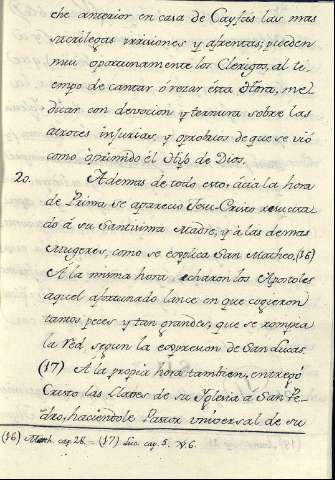 che anterior en casa de Cayfás las mas
sacrilegas irrisiones y afrentas; pueden
mui oportunamente los Clerigos, al ti-
empo de cantar ó rezar ésta Hora, me-
ditar con devocion y ternura sobre las
atroces injurias, y oprobios de que se vió
como oprimido el Hijo de Dios.
20. Ademas de todo esto, ácia la hora
de Prima se apareció Jesu-Cristo resucita-
do á su Santisima Madre, y á las demas
Mugeres, como se explica San Matheo, (16)
A la misma hora, echaron los Apostoles
aquel afortunado lance en que cogieron
tantos peces y tan grandes, que se rompia
la Red, segun la expresion de San Lucas.
(17) A la propia hora tambien, entregó
Cristo las Llaves de su Yglesia á San Pe-
dro, haciéndole Pastor universal de su
(16) Math. cap. 28. = (17) Luc. cap. 5. V. 6.